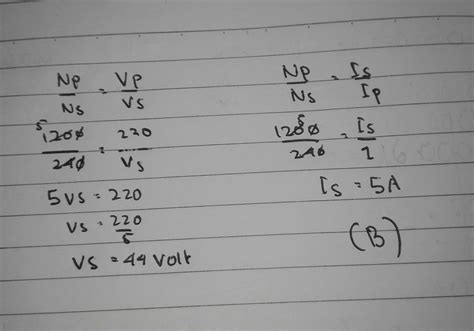 Np/Ns = Vp/Vs
5
1200/240 = 220/Vs
5Vs = 220
Vs = 220/5
Vs = 44 Volt
Np/Ns = Is/Ip
5
1200/240 = Is/1
Is = 5A
(B)